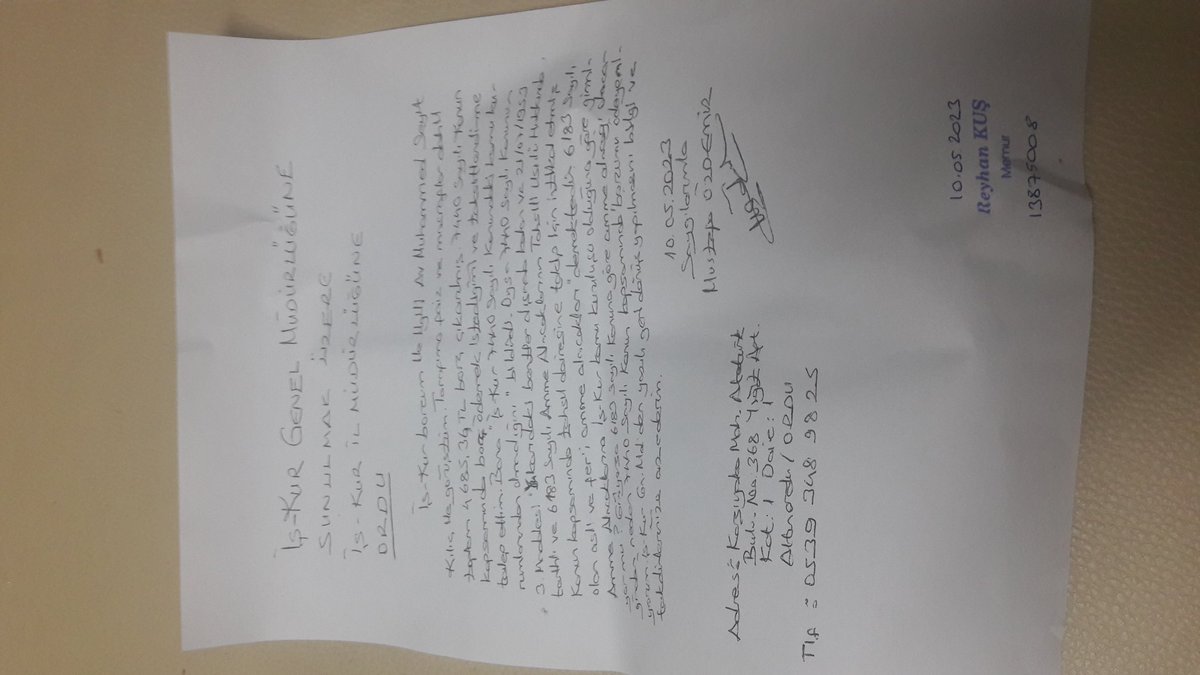 İŞ-KUR GENEL MÜDÜRLÜĞÜNE
SUNULMAK ÜZERE
İŞ-KUR İL MÜDÜRLÜĞÜNE
ORDU
İş-Kur borcum ile ilgili Av Muhammed Seyit
Kılıç ile görüştüm. Tarafıma faiz ve masraflar dahil
toplam 4685,34 TL borç çıkarılmış. 7440 Sayılı Kanun
kapsamında borç ödemek istediğimi ve taksitlendirme
talep ettim. Bana "İş-Kur 7440 Sayılı Kanundaki kamu ku-
rumlarından olmadığını" bildirdi. Oysa 7440 Sayılı Kanunun
3. Maddesi "Yukarıdaki bentler dışında kalan ve 21/07/1953
tarihli ve 6183 Sayılı Amme Alacaklarının Tahsili Usulü Hakkında
Kanun kapsamında tahsil dairesine takip için intikal etmiş
olan asli ve fer'i amme alacakları" demektedir. 6183 Sayılı
Amme Alacaklarına İş-Kur kamu kuruluşu olduğuna göre girmi-
yor mu? Giriyorsa 6183 Sayılı Kanuna göre amme alacağı
neden 7440 Sayılı Kanun kapsamında borcumu ödeyemi-
yorum. İş-Kur Gn. Md. den yazılı geri dönüş yapılmasını bilgi ve
arz ederim.
10.05.2023
Saygılarımla
Mustafa ÖZDEMİR
Adres: Karşıyaka Mah. Atatürk
Bulv. No: 368 Yiğit Apt.
Kat: 1 Daire: 1
Altınordu / ORDU
Tlf : 0539 348 9825
10.05.2023
Reyhan KUŞ
Memur
13875008